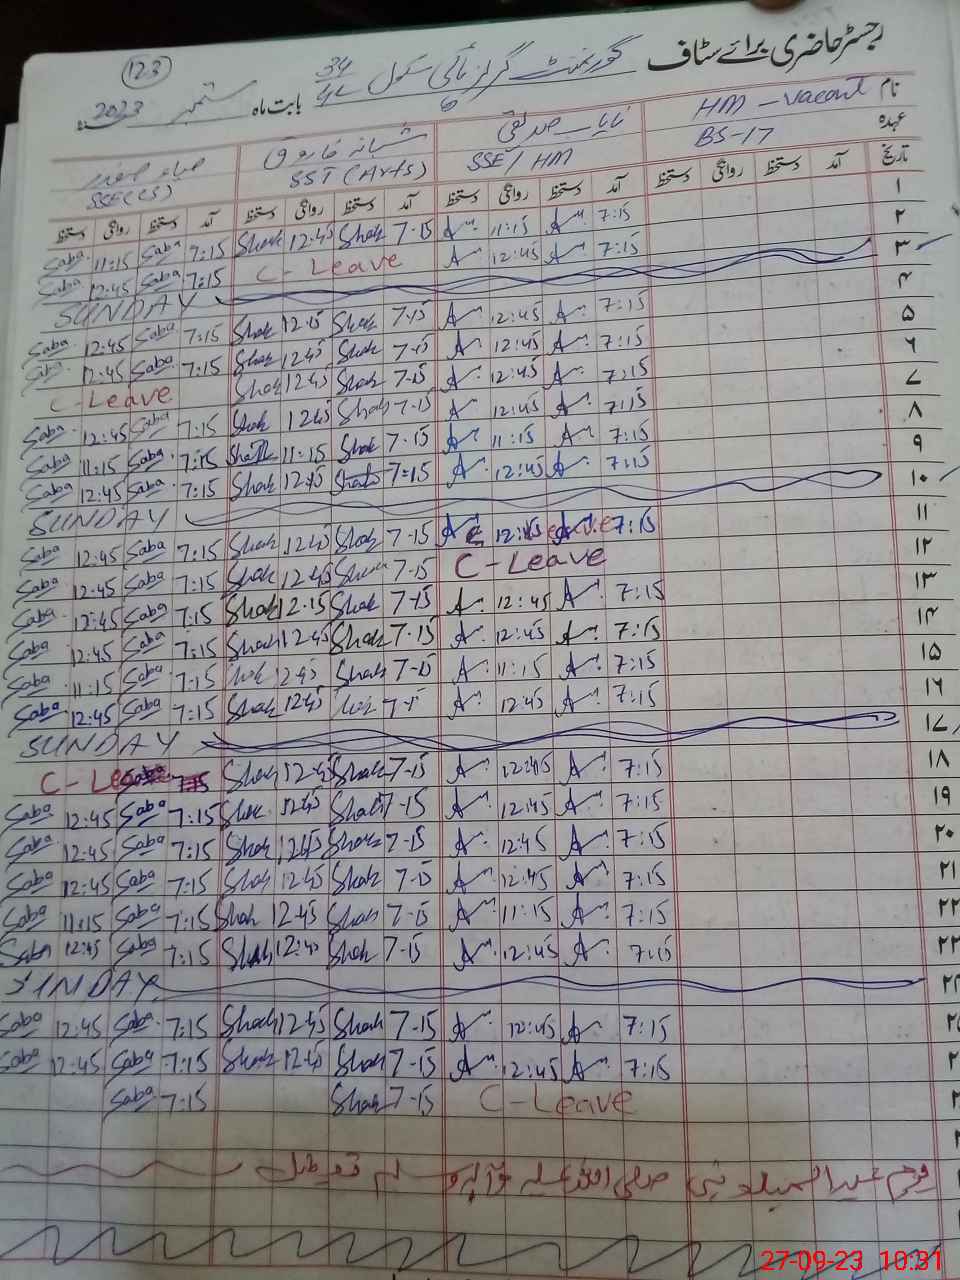 رجسٹر حاضری برائے سٹاف گورنمنٹ گرلز ہائی سکول 34 بابت ماہ ستمبر 2023ء
123
نام HM - Vacant نایاب صدیقی شبانہ فاروق صباء صفدر
عہدہ BS-17 SSE/HM SST (Arts) SSE(CS)
تاریخ آمد دستخط روانگی دستخط آمد دستخط روانگی دستخط آمد دستخط روانگی دستخط آمد دستخط روانگی دستخط
۱
Saba 11:15 Saba 7:15 Shah 12.45 Shah 7-15 A 11:15 A 7:15 ۲
Saba 12:45 Saba 7:15 C-Leave A 12:45 A 7:15 ۳
SUNDAY ۴
Saba 12:45 Saba 7:15 Shah 12.15 Shah 7-15 A 12:45 A 7:15 ۵
Saba 12:45 Saba 7:15 Shah 12.45 Shah 7-15 A 12:45 A 7:15 ۶
C-Leave Shah 12.45 Shah 7-15 A 12:45 A 7:15 ۷
Saba 12:45 Saba 7:15 Shah 12.45 Shah 7-15 A 12:45 A 7:15 ۸
Saba 11:15 Saba 7:15 Shah 11-15 Shah 7-15 A 11:15 A 7:15 ۹
Saba 12:45 Saba 7:15 Shah 12.45 Shah 7-15 A 12:45 A 7:15 ۱۰
SUNDAY ۱۱
Saba 12:45 Saba 7:15 Shah 12.45 Shah 7-15 A 12:45 A 7:15 ۱۲
Saba 12:45 Saba 7:15 Shah 12.45 Shah 7-15 C-Leave ۱۳
Saba 12:45 Saba 7:15 Shah 12.15 Shah 7-15 A 12:45 A 7:15 ۱۴
Saba 12:45 Saba 7:15 Shah 12.45 Shah 7-15 A 12:45 A 7:15 ۱۵
Saba 11:15 Saba 7:15 Shah 12.45 Shah 7-15 A 11:15 A 7:15 ۱۶
Saba 12:45 Saba 7:15 Shah 12.45 Shah 7-15 A 12:45 A 7:15
SUNDAY ۱۷
C-Leave Saba 7:15 Shah 12.45 Shah 7-15 A 12:45 A 7:15 ۱۸
Saba 12:45 Saba 7:15 Shah 12.45 Shah 7-15 A 12:45 A 7:15 ۱۹
Saba 12:45 Saba 7:15 Shah 12.45 Shah 7-15 A 12:45 A 7:15 ۲۰
Saba 12:45 Saba 7:15 Shah 12.45 Shah 7-15 A 12:45 A 7:15 ۲۱
Saba 11:15 Saba 7:15 Shah 12.45 Shah 7-15 A 11:15 A 7:15 ۲۲
Saba 12:45 Saba 7:15 Shah 12.45 Shah 7-15 A 12:45 A 7:15 ۲۳
SUNDAY
Saba 12:45 Saba 7:15 Shah 12.45 Shah 7-15 A 12:45 A 7:15
Saba 12:45 Saba 7:15 Shah 12.45 Shah 7-15 A 12:45 A 7:15
Saba 7:15 Shah 7-15 C-Leave
یوم عید المیلاد نبی صلی اللہ علیہ وآلہ وسلم تعطیل
27-09-23 10:31